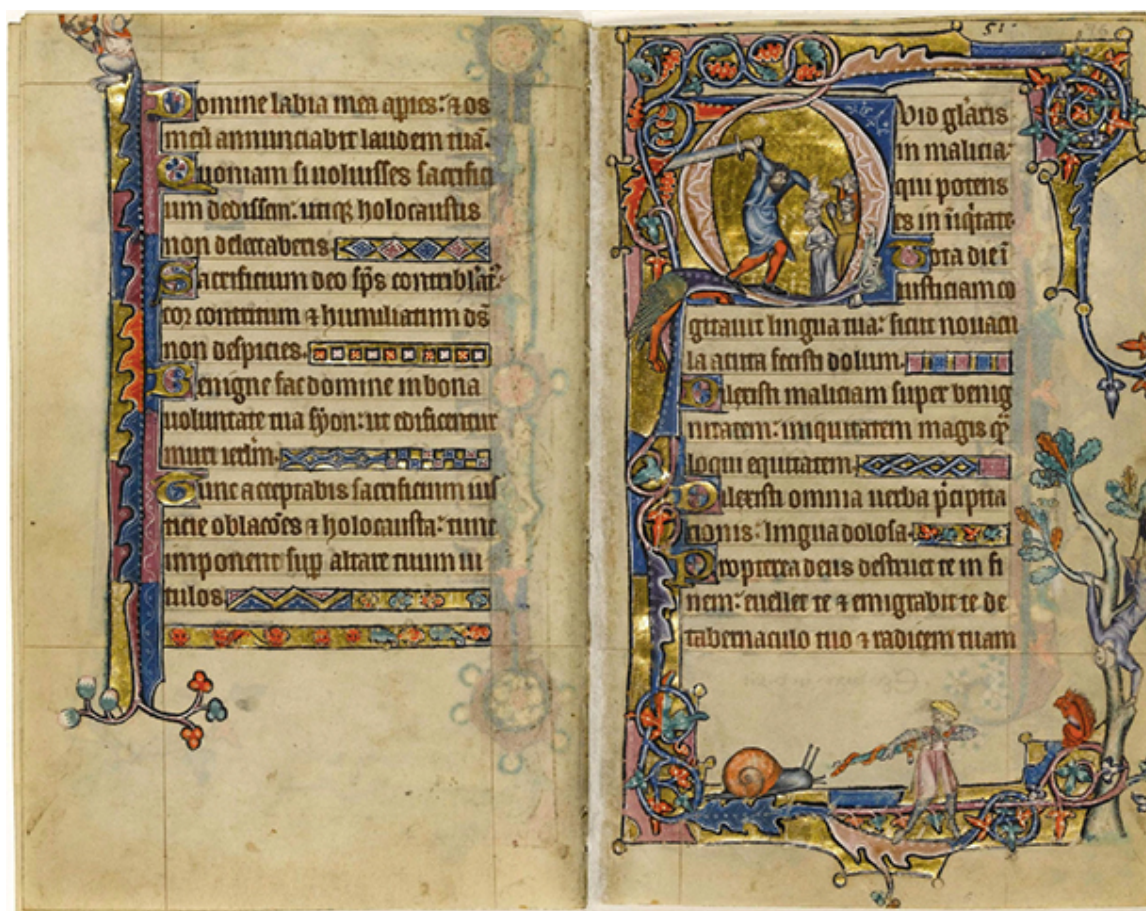 Domine labia mea apies: & os
meū annunciabit laudem tuā.
Quoniam si uoluisses sacrifici
um dedissem: utiq holocaustis
non delectaberis.
Sacrificium deo sps contriblat:
cor contritum & humiliatum ds
non despicies.
Benigne fac domine in bona
uoluntate tua syon: ut edificentur
muri ierlm.
Tunc acceptabis sacrificium ius
ticie oblacōes & holocausta: tunc
imponent sup altare tuum ui
tulos.
51
Quid glaris
in malicia:
qui potens
es in iiqtate
Tota die ī
iusticiam co
gitauit lingua tua: sicut nouacu
la acuta fecisti dolum.
Dilexisti maliciam super benig
nitatem: iniquitatem magis qm
loqui equitatem.
Dilexisti omnia uerba pcipita
cionis: lingua dolosa.
Propterea deus destruet te in fi
nem: euellet te & emigrabit te de
tabernaculo tuo & radicem tuam